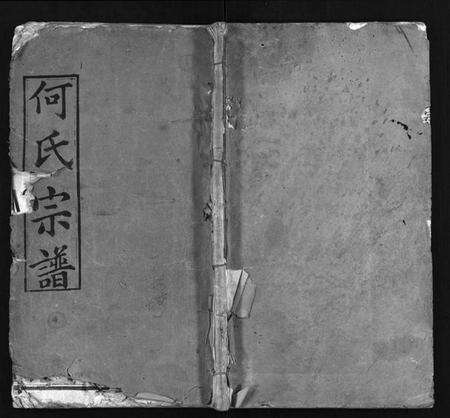 何氏宗譜